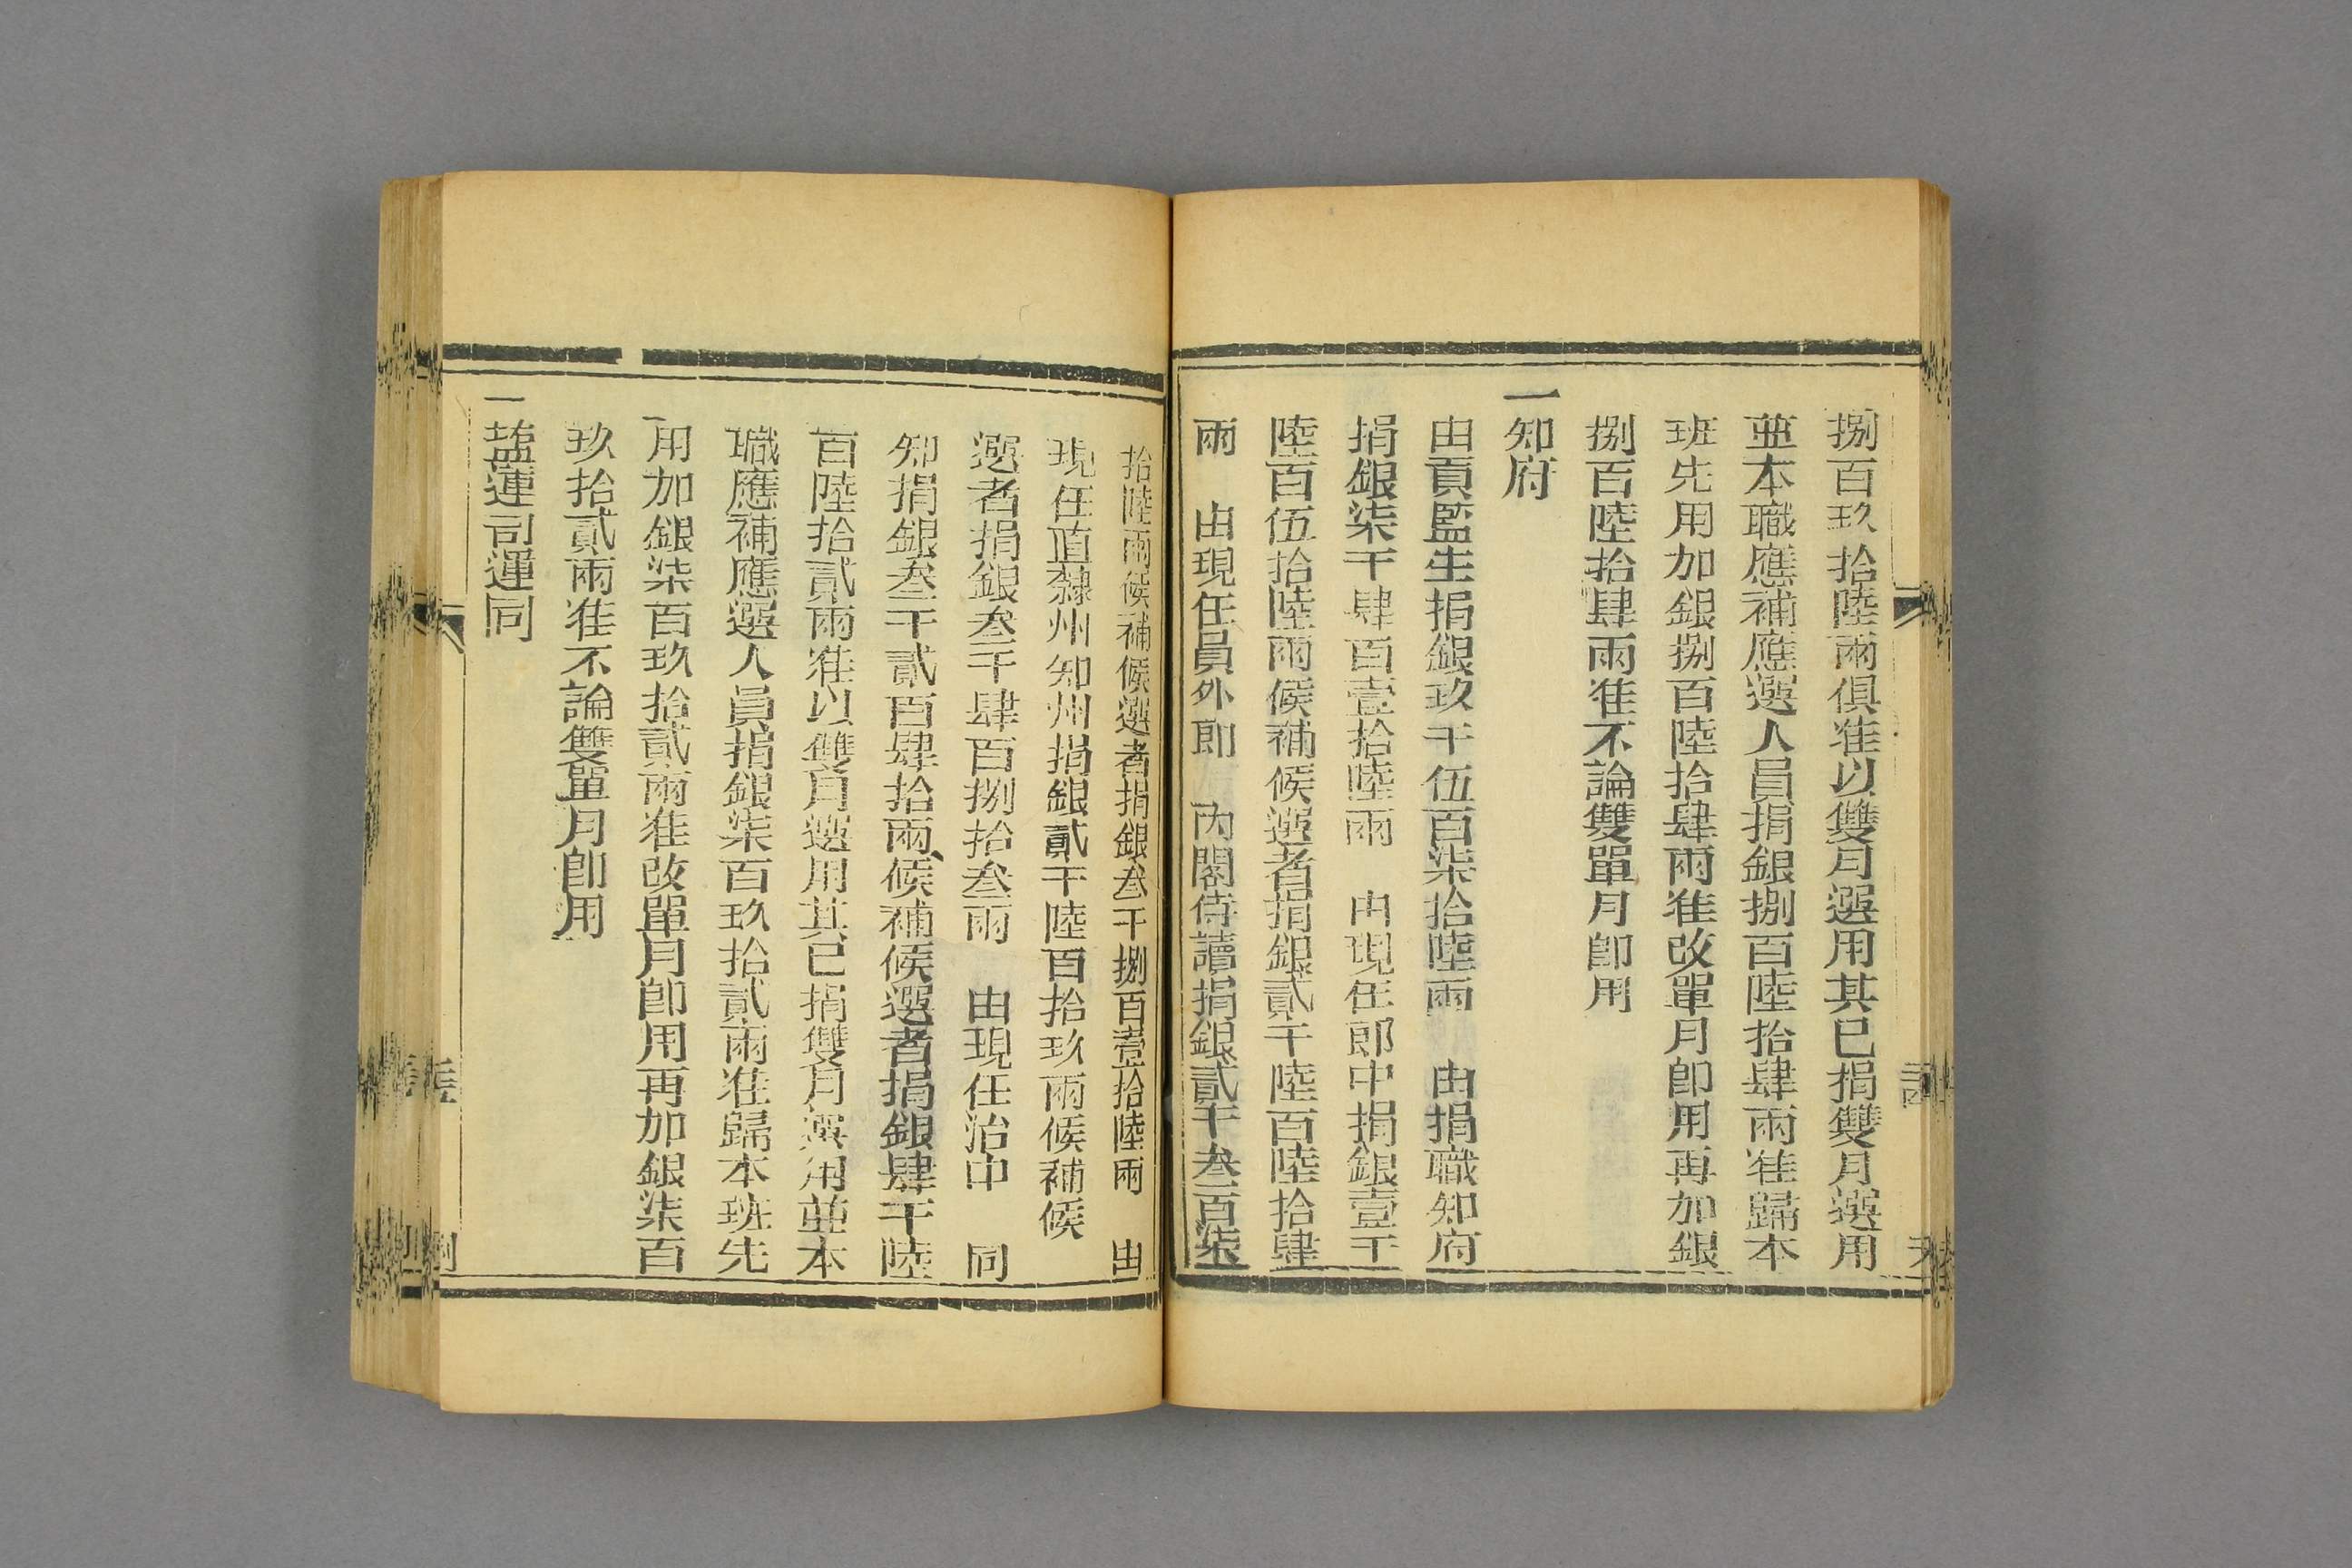 捌百玖拾陸兩俱准以雙月選用其已捐雙月選用
並本職應補應選人員捐銀捌百陸拾肆兩准歸本
班先用加銀捌百陸拾肆兩准改單月卽用再加銀
捌百陸拾肆兩准不論雙單月卽用
一知府
由貢監生捐銀玖千伍百柒拾陸兩 由捐職知府
捐銀柒千肆百壹拾陸兩 由現任郎中捐銀壹千
陸百伍拾陸兩候補候選者捐銀貳千陸百陸拾肆
兩 由現任員外郎 內閣侍讀捐銀貳千叁百柒
拾陸兩候補候選者捐銀叁千捌百壹拾陸兩 由
現任直隸州知州捐銀貳千陸百拾玖兩候補候
選者捐銀叁千肆百捌拾叁兩 由現任治中 同
知捐銀叁千貳百肆拾兩候補候選者捐銀肆千陸
百陸拾貳兩准以雙月選用其已捐雙月選用並本
職應補應選人員捐銀柒百玖拾貳兩准歸本班先
用加銀柒百玖拾貳兩准改單月卽用再加銀柒百
玖拾貳兩准不論雙單月卽用
一塩運司運同